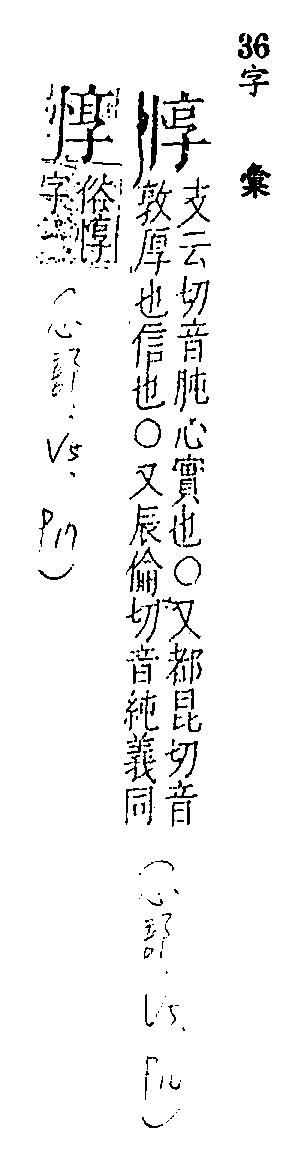 36字彙
惇支云切音肫心實也○又都昆切音
敦厚也信也○又辰倫切音純義同
(心部. V5. P16)
惸俗惇
字
(心部. V5. P17)